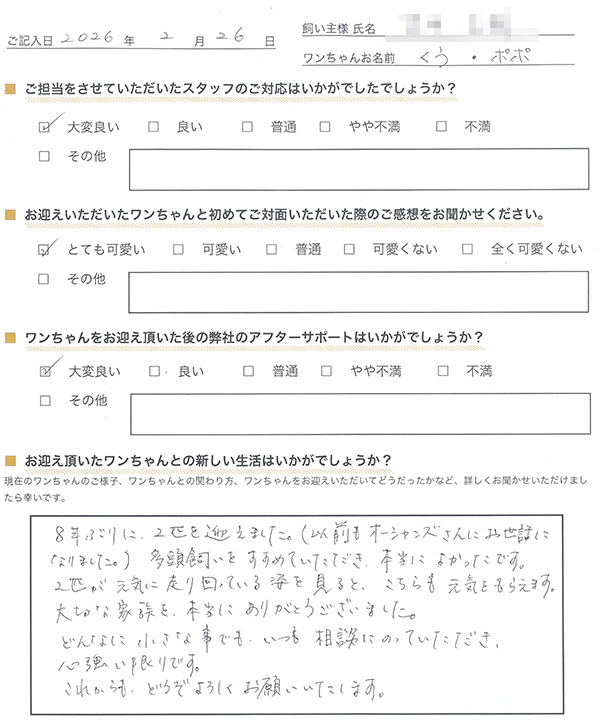 ご記入日 2026 年 2 月 26 日
飼い主様 氏名
ワンちゃんお名前 くう・ポポ
■ ご担当をさせていただいたスタッフのご対応はいかがでしたでしょうか？
☑ 大変良い □ 良い □ 普通 □ やや不満 □ 不満
□ その他
■ お迎えいただいたワンちゃんと初めてご対面いただいた際のご感想をお聞かせください。
☑ とても可愛い □ 可愛い □ 普通 □ 可愛くない □ 全く可愛くない
□ その他
■ ワンちゃんをお迎え頂いた後の弊社のアフターサポートはいかがでしょうか？
☑ 大変良い □ 良い □ 普通 □ やや不満 □ 不満
□ その他
■ お迎え頂いたワンちゃんとの新しい生活はいかがでしょうか？
現在のワンちゃんのご様子、ワンちゃんとの関わり方、ワンちゃんをお迎えいただいてどうだったかなど、詳しくお聞かせいただけまし
たら幸いです。
8年ぶりに、2匹を迎えました。(以前もオーシャンズさんにお世話に
なりました。) 多頭飼いをすすめていただき、本当によかったです。
2匹が元気に走り回っている姿を見ると、こちらも元気をもらえます。
大切な家族を、本当にありがとうございました。
どんなに小さな事でも、いつも相談にのっていただき、
心強い限りです。
これからも、どうぞよろしくお願いいたします。